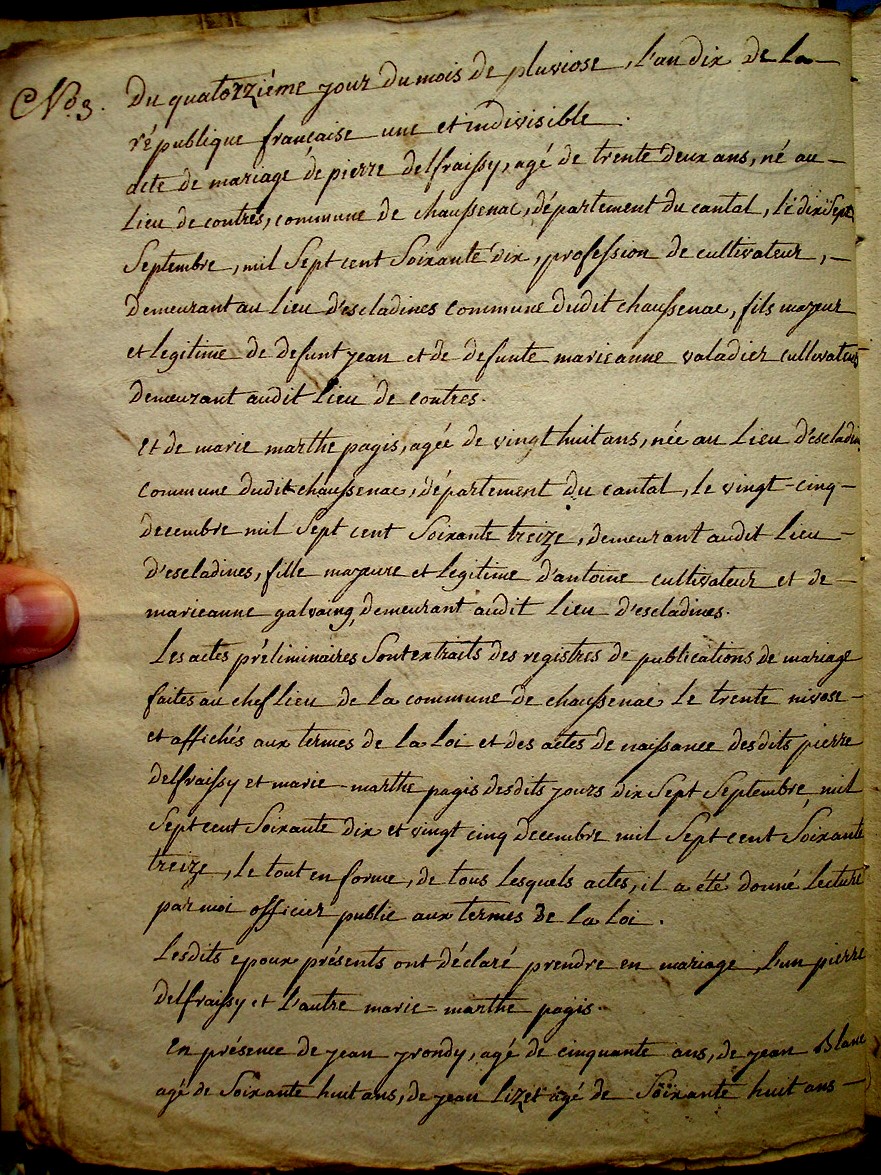 No. 3. Du quatorzziéme jour du mois de pluviose, l'an dix de la
république française une et indivisible.
acte de mariage de pierre delfraissy, agé de trente deux ans, né au
Lieu de contres, commune de chaussenac, département du cantal, le dix Sept
Septembre, mil Sept cent Soixante dix, profession de cultivateur,
demeurant au Lieu d'escladines commune dudit chaussenac, fils majeur
et legitime de defunt jean et de defunte marieanne valadier cultivateurs
demeurant audit Lieu de contres.
et de marie marthe pagis, agée de vingt huit ans, née au Lieu d'escladin
commune dudit chaussenac, département du cantal, le vingt-cinq
decembre mil Sept cent Soixante treize, demeurant audit Lieu
d'escladines, fille majeure et legitime d'antoine cultivateur et de
marieanne galvaing, demeurant audit Lieu d'escladines.
Les actes préliminaires Sont extraits des registres de publications de mariage
faites au chef Lieu de la commune de chaussenac Le trente nivose
et affichés aux termes de la Loi et des actes de naissance desdits pierre
delfraissy et marie-marthe pagis desdits jours dix Sept Septembre mil
Sept cent Soixante dix et vingt cinq decembre mil Sept cent Soixante
treize, Le tout en forme, de tous Lesquels actes, il a été donné Lecture
par moi officier public aux termes de La Loi.
Lesdits epoux présents ont déclaré prendre en mariage, L'un pierre
delfraissy et L'autre marie=marthe pagis.
En présence de jean jrondy, agé de cinquante ans, de jean Blanc
agé de Soixante huit ans, de jean Lizet agé de Soixante huit ans